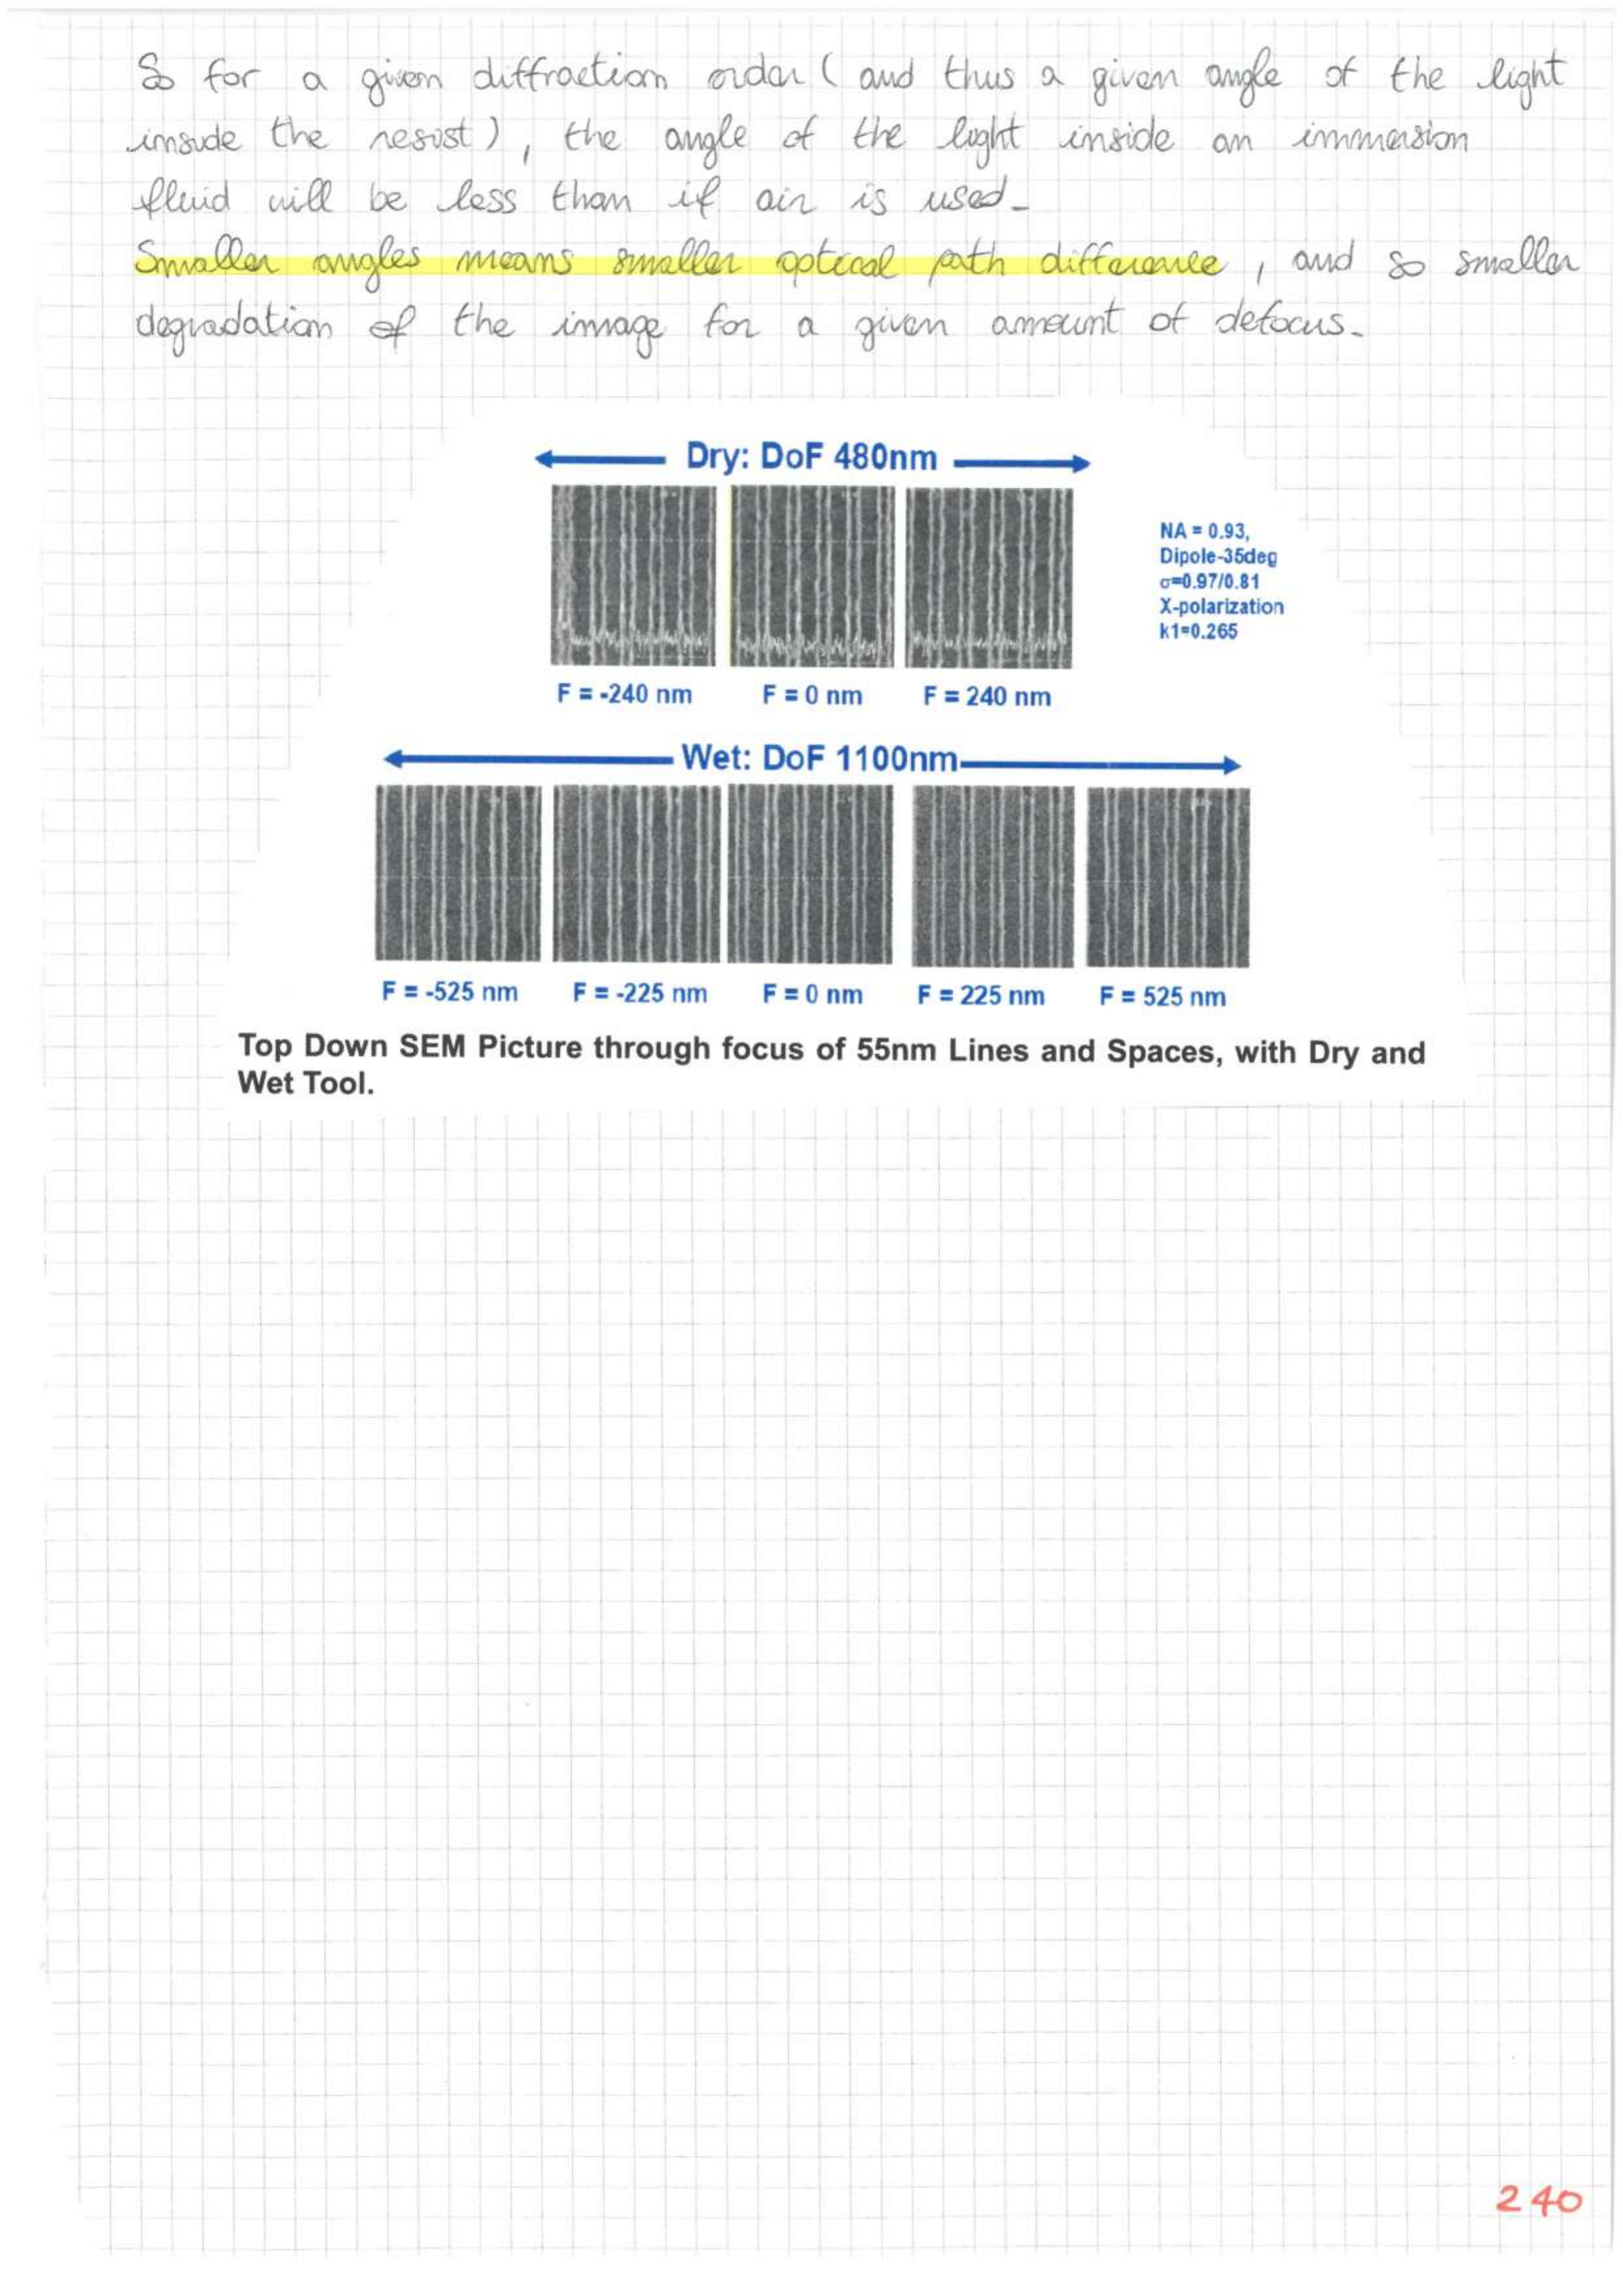 So for a given diffraction order (and thus a given angle of the light
inside the resist), the angle of the light inside an immersion
fluid will be less than if air is used.
Smaller angles means smaller optical path difference, and so smaller
degradation of the image for a given amount of defocus.
Dry: DoF 480nm
NA = 0.93,
Dipole-35deg
σ=0.97/0.81
X-polarization
k1=0.265
F = -240 nm F = 0 nm F = 240 nm
Wet: DoF 1100nm
F = -525 nm F = -225 nm F = 0 nm F = 225 nm F = 525 nm
Top Down SEM Picture through focus of 55nm Lines and Spaces, with Dry and
Wet Tool.
240